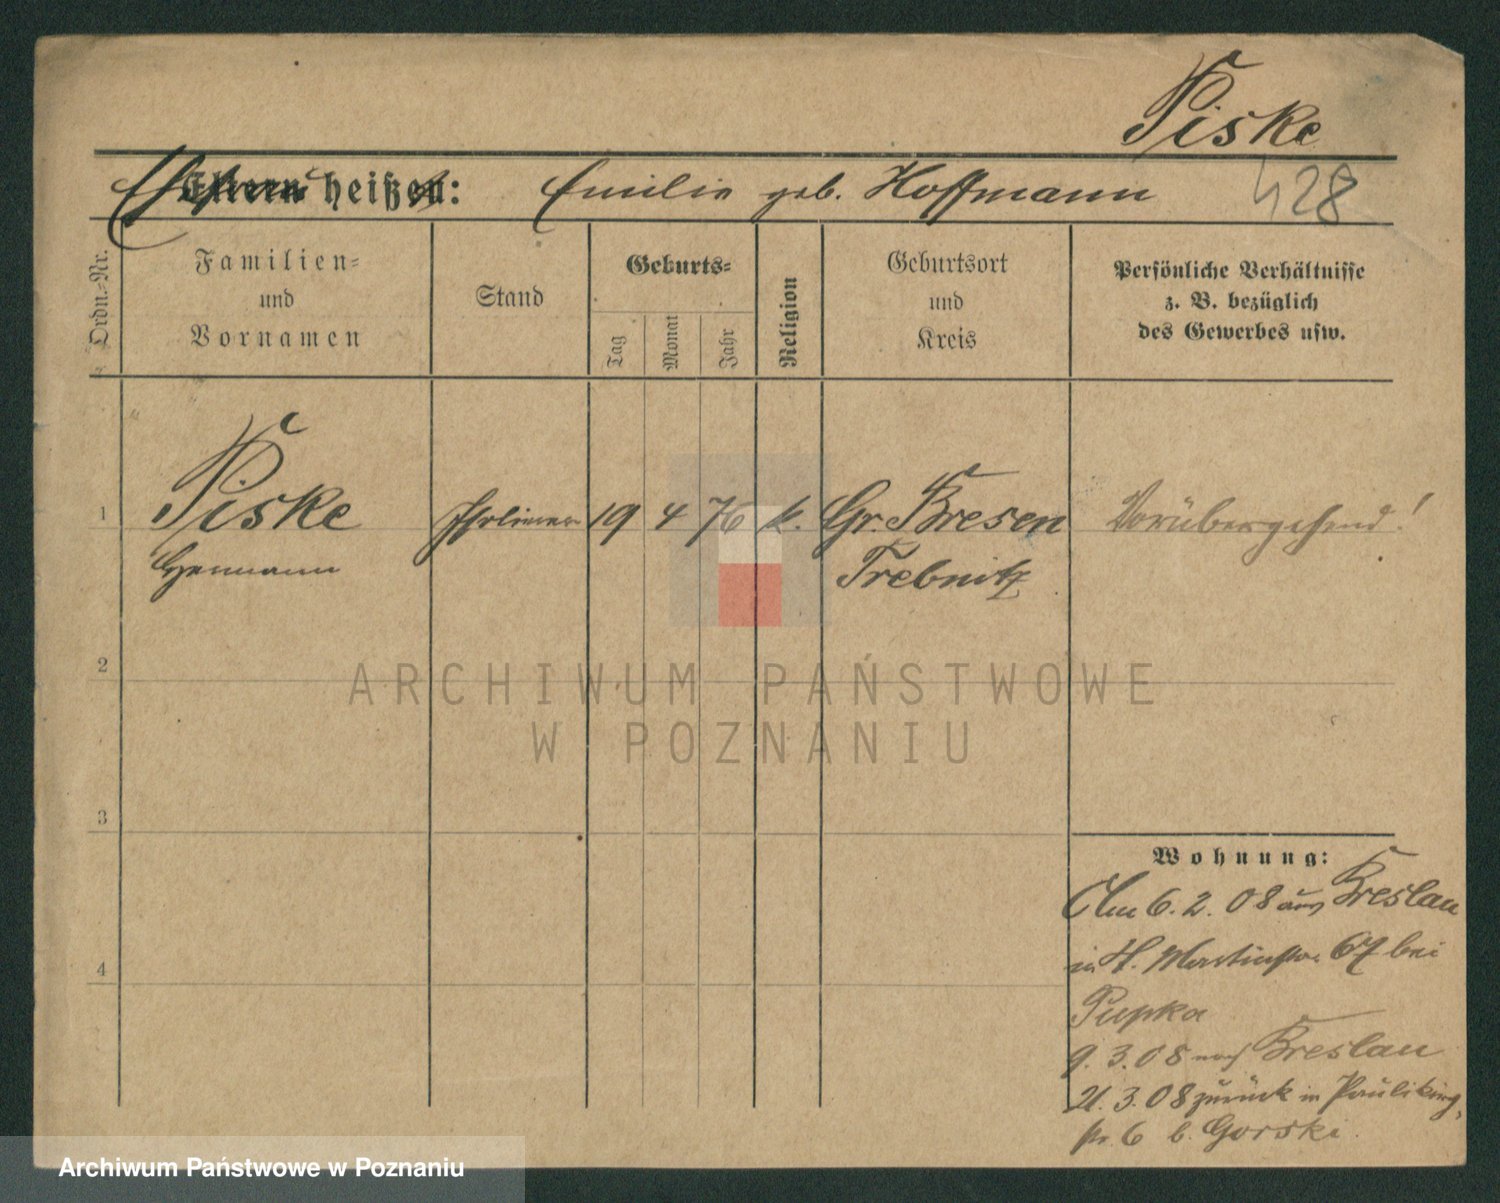 Piske
Eltern heißen: Emilie geb. Hoffmann 428
Ordn.-Nr.
Familien-
und
Vornamen
Stand
Geburts-
Tag
Monat
Jahr
Religion
Geburtsort
und
Kreis
Persönliche Verhältnisse
z. B. bezüglich
des Gewerbes usw.
1 Piske 19 4 76 k. Gr. Bresen Vorübergehend!
Hermann Trebnitz
2
ARCHIWUM PAŃSTWOWE
W POZNANIU
3
Wohnung:
Am 6. 2. 08 aus Breslau
in St. Martinstr. 67 bei
4
Pupka
9. 3. 08 nach Breslau
21. 3. 08 zurück in Paulikirch-
str. 6 b. Gorski.
Archiwum Państwowe w Poznaniu